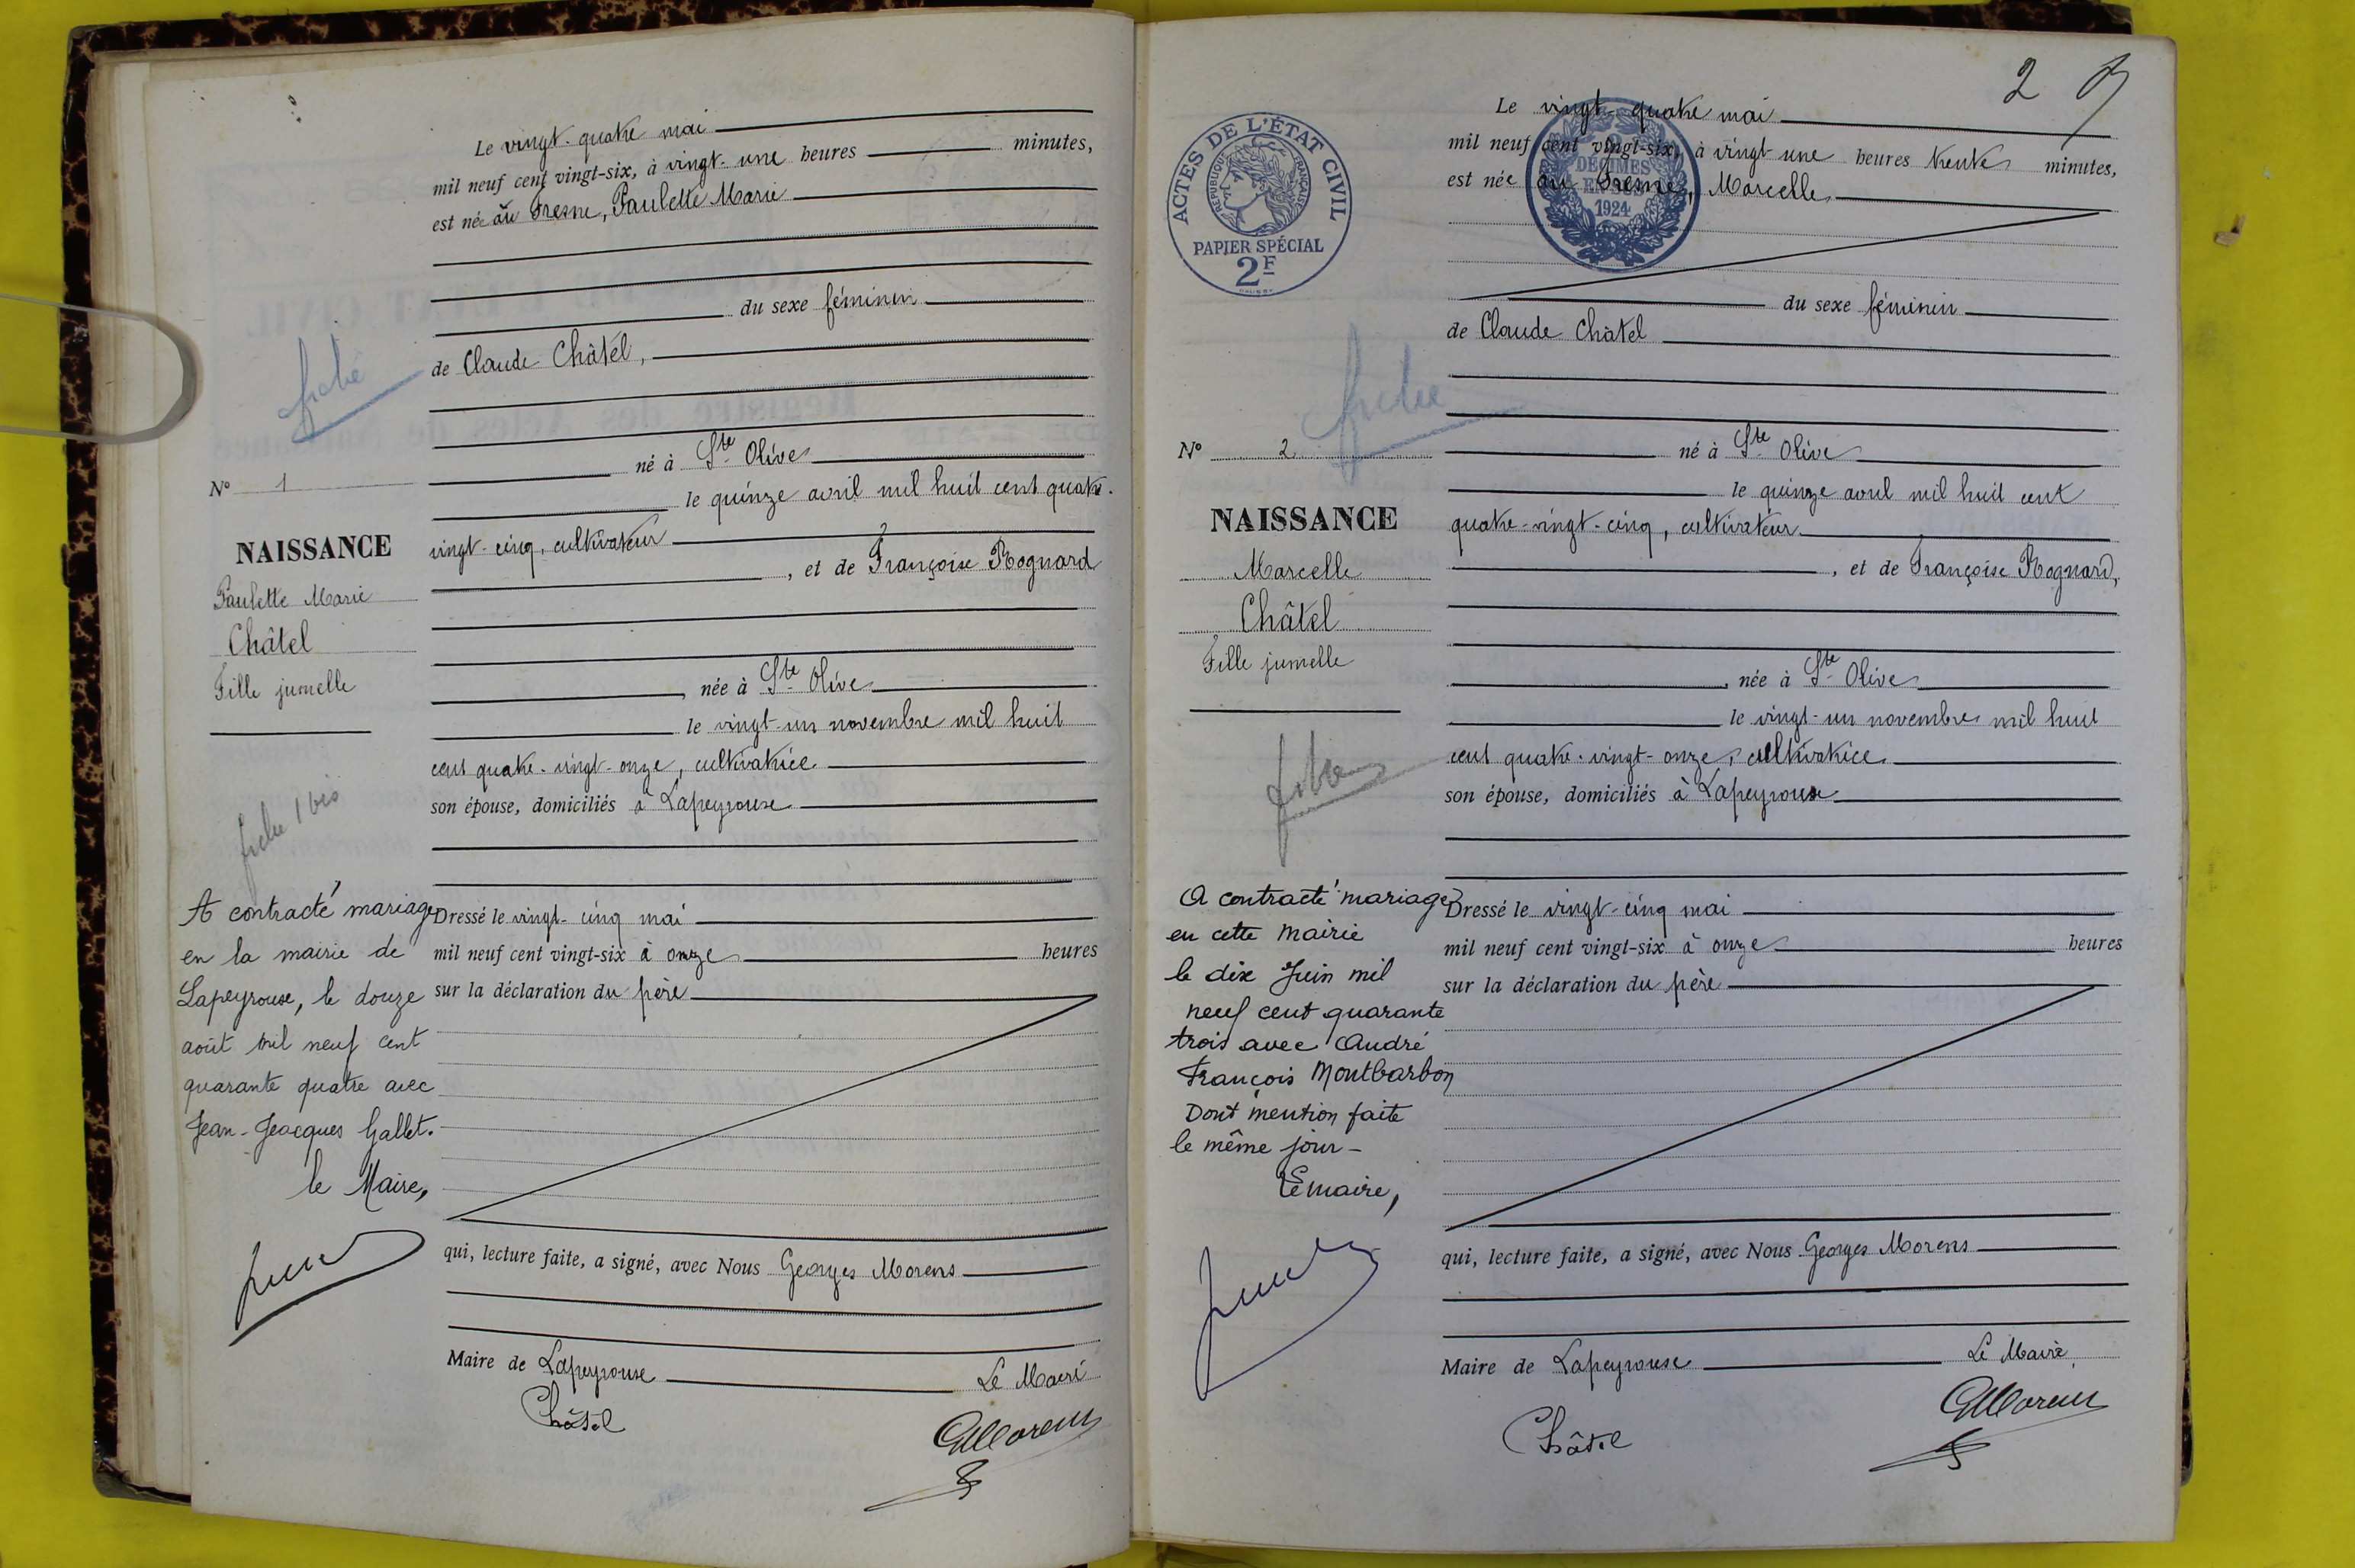 Le vingt-quatre mai
mil neuf cent vingt-six, à vingt-une heures minutes,
est née au Fresne, Paulette Marie
du sexe féminin
de Claude Châtel,
né à Ste Olive
le quinze avril mil huit cent quatre-
vingt-cinq, cultivateur
, et de Françoise Rognard
, née à Ste Olive
le vingt-un novembre mil huit
cent quatre-vingt-onze, cultivatrice
son épouse, domiciliés à Lapeyrouse
Dressé le vingt-cinq mai
mil neuf cent vingt-six à onze heures
sur la déclaration du père
qui, lecture faite, a signé, avec Nous Georges Morens
Maire de Lapeyrouse Le Maire
Châtel
GMorens
fiche
No 1
NAISSANCE
Paulette Marie
Châtel
Fille jumelle
fiche 1 bis
A contracté mariage
en la mairie de
Lapeyrouse, le douze
août mil neuf cent
quarante quatre avec
Jean-Jacques Gallet.
le Maire,
2
Le vingt-quatre mai
mil neuf cent vingt-six, à vingt-une heures trente minutes,
est née au Fresne, Marcelle
du sexe féminin
de Claude Châtel
né à Ste Olive
le quinze avril mil huit cent
quatre-vingt-cinq, cultivateur
, et de Françoise Rognard,
, née à Ste Olive
le vingt-un novembre mil huit
cent quatre-vingt-onze, cultivatrice
son épouse, domiciliés à Lapeyrouse
Dressé le vingt-cinq mai
mil neuf cent vingt-six à onze heures
sur la déclaration du père
qui, lecture faite, a signé, avec Nous Georges Morens
Maire de Lapeyrouse Le Maire
Châtel
GMorens
ACTES DE L'ÉTAT CIVIL
RÉPUBLIQUE FRANÇAISE
PAPIER SPÉCIAL
2F
2
DÉCIMES
EN SUS
1924
fiche
No 2
NAISSANCE
Marcelle
Châtel
Fille jumelle
fiche
A contracté mariage
en cette mairie
le dix Juin mil
neuf cent quarante
trois avec André
François Montbarbon
Dont mention faite
le même jour -
Le maire,